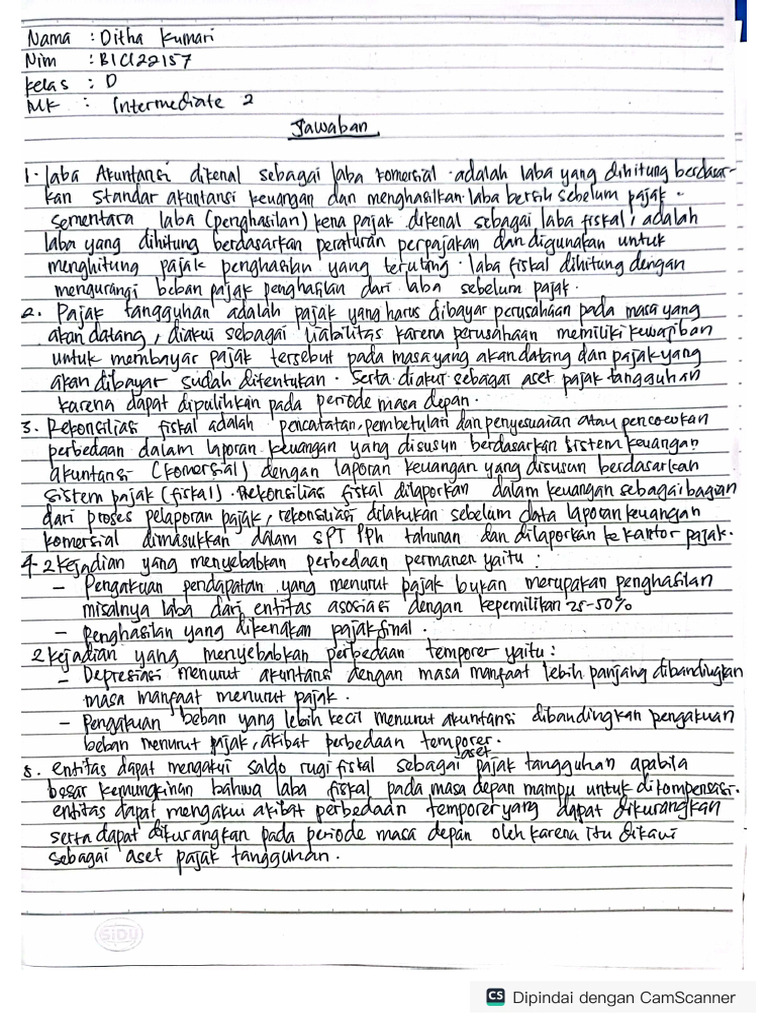 Nama : Ditha Kumari
Nim : B1C122157
Kelas : D
MK : Intermediate 2
Jawaban
1. Laba Akuntansi dikenal sebagai laba komersial adalah laba yang dihitung berdasar-
kan standar akuntansi keuangan dan menghasilkan laba bersih sebelum pajak.
Sementara laba (penghasilan) kena pajak dikenal sebagai laba fiskal, adalah
laba yang dihitung berdasarkan peraturan perpajakan dan digunakan untuk
menghitung pajak penghasilan yang terutang. laba fiskal dihitung dengan
mengurangi beban pajak penghasilan dari laba sebelum pajak.
2. Pajak tangguhan adalah pajak yang harus dibayar perusahaan pada masa yang
akan datang, diakui sebagai liabilitas karena perusahaan memiliki kewajiban
untuk membayar pajak tersebut pada masa yang akan datang dan pajak yang
akan dibayar sudah ditentukan. Serta diakur sebagai aset pajak tangguhan
karena dapat dipulihkan pada periode masa depan.
3. Rekonsiliasi fiskal adalah pencatatan, pembetulan dan penyesuaian atau pencocokan
perbedaan dalam laporan keuangan yang disusun berdasarkan sistem keuangan
akuntansi (komersial) dengan laporan keuangan yang disusun berdasarkan
sistem pajak (fiskal). Rekonsilias fiskal dilaporkan dalam keuangan sebagai bagian
dari proses pelaporan pajak, rekonsiliasi dilakukan sebelum data laporan keuangan
komersial dimasukkan dalam SPT PPh tahunan dan dilaporkan ke kantor pajak.
4. 2 kejadian yang menyebabkan perbedaan permanen yaitu :
- Pengakuan pendapatan yang menurut pajak bukan merupakan penghasilan
misalnya laba dari entitas asosiasi dengan kepemilikan 25-50%
- Penghasilan yang dikenakan pajak final.
2 kejadian yang menyebabkan perbedaan temporer yaitu :
- Depresiasi menurut akuntansi dengan masa manfaat lebih panjang dibandingkan
masa manfaat menurut pajak.
- Pengakuan beban yang lebih kecil menurut akuntansi dibandingkan pengakuan
beban menurut pajak, akibat perbedaan temporer.
5. entitas dapat mengakui saldo rugi fiskal sebagai aset pajak tangguhan apabila
besar kemungkinan bahwa laba fiskal pada masa depan mampu untuk dikompensasi.
entitas dapat mengakui akibat perbedaan temporer yang dapat dikurangkan
serta dapat dikurangkan pada periode masa depan oleh karena itu diakui
sebagai aset pajak tangguhan.
SiDU
CS Dipindai dengan CamScanner